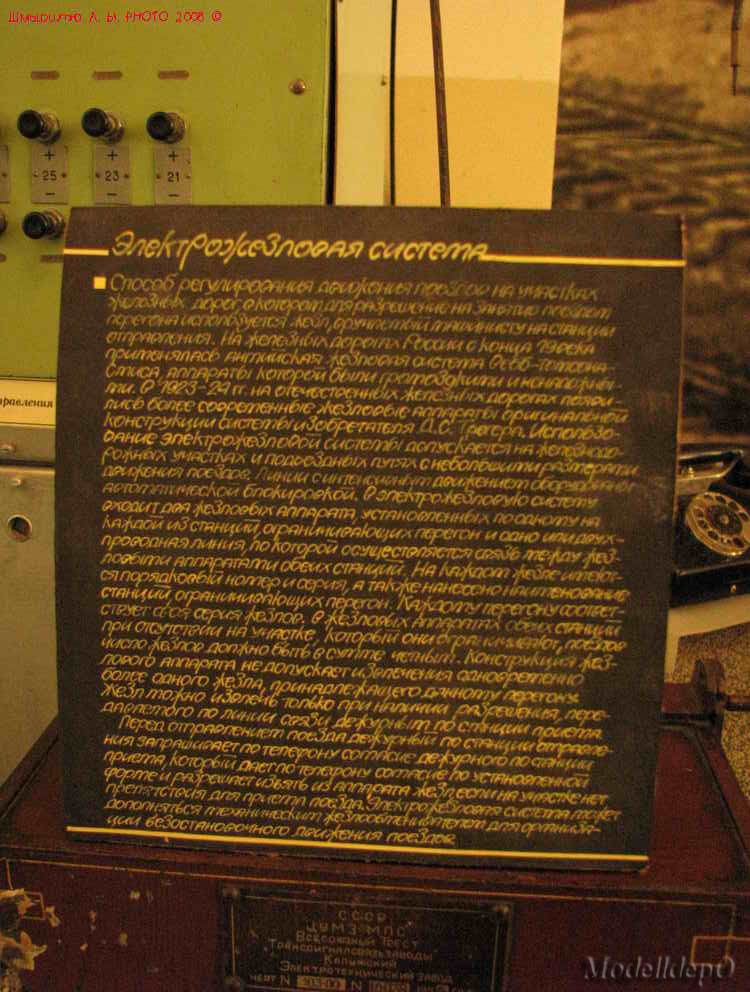 Л. Ы. PHOTO 2008 ©
+ + +
25 23 21
- - -
правления
Электрожезловая система
Способ регулирования движения поездов на участках
железных дорог в котором для разрешение на занятие поездом
перегона используется жезл, вручаемый машинисту на станции
отправления. На железных дорогах России с конца 19 века
применялась английская жезловая система Вебб-Томсона.
аппараты которой были громоздкими и ненадежны-
ми. В 1923-24 гг. на отечественных железных дорогах появи-
лись более современные жезловые аппараты оригинальной
конструкции системы изобретателя Д.С. Трегера. Использо-
вание электрожезловой системы допускается на железнодо-
рожных участках и подъездных путях с небольшими размерами
движения поездов. Линии с интенсивным движением оборудованы
автоматической блокировкой. В электрожезловую систему
входит два жезловых аппарата, установленных по одному на
каждой из станций, ограничивающих перегон и одно или двух-
проводная линия, по которой осуществляется связь между жез-
ловыми аппаратами обеих станций. На каждом жезле имеют-
ся порядковый номер и серия, а также нанесено наименование
станций ограничивающих перегон. Каждому перегону соответ-
ствует своя серия жезлов. В жезловых аппаратах обеих станций
при отсутствии на участке, который они ограничивают, поездов
число жезлов должно быть в сумме четным. Конструкция жез-
лового аппарата не допускает извлечения одновременно
более одного жезла, принадлежащего данному перегону.
Жезл можно извлечь только при наличии разрешения, пере-
даваемого по линии связи дежурным по станции приема.
Перед отправлением поезда дежурный по станции отправле-
ния запрашивает по телефону согласие дежурного по станции
приема, который дает по телефону согласие по установленной
форме и разрешает изъять из аппарата жезл если на участке нет
препятствия для приема поезда. Электрожезловая система может
дополняться механическим жезлообменивателем для организа-
ции безостановочного движения поездов
СССР
ЦУМЗ МПС
Всесоюзный трест
"Транссигналсвязьзаводы"
Калужский
Электротехнический завод
черт N N
Modelldepo